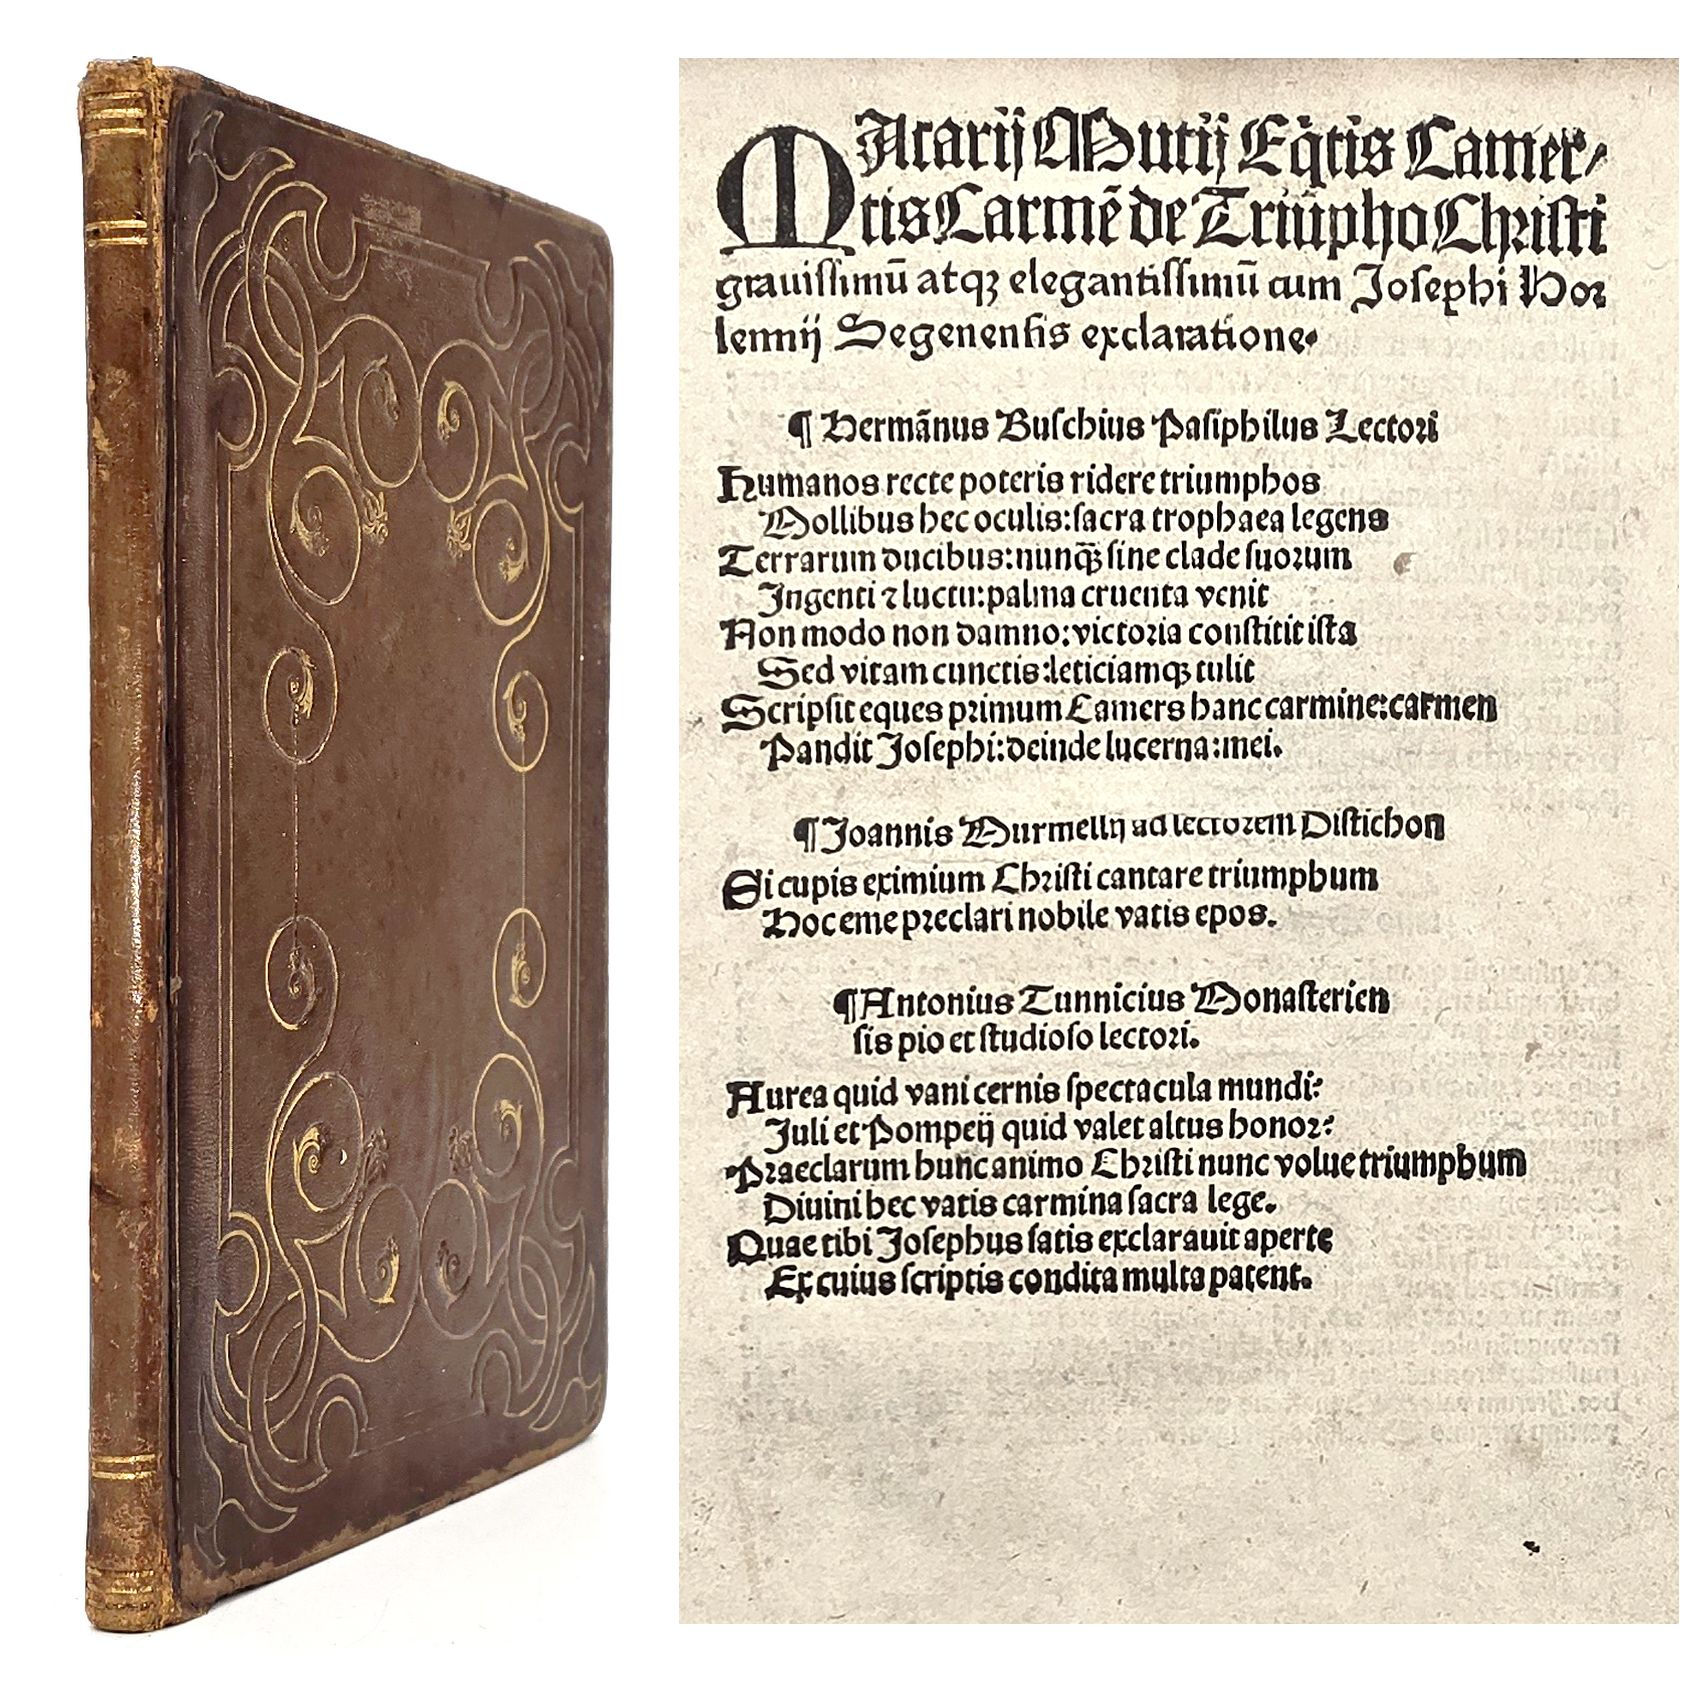 MAcarij Mutij Eq̃tis Camer⸗
tis Carmẽ de Triũpho Christi
grauissimũ atqꝫ elegantissimũ cum Josephi Hor
lennij Segenensis exclaratione.
¶ Hermãnus Buschius Pasiphilus Lectori
Humanos recte poteris ridere triumphos
Mollibus hec oculis: sacra trophaea legens
Terrarum ducibus: nunq̃ sine clade suorum
Ingenti ⁊ luctu: palma cruenta venit
Non modo non damno: victoria constitit ista
Sed vitam cunctis: leticiamqꝫ tulit
Scripsit eques primum Camers hanc carmine: carmen
Pandit Josephi: deinde lucerna: mei.
¶ Joannis Murmellij ad lectorem Distichon
Si cupis eximium Christi cantare triumphum
Hoc eme preclari nobile vatis epos.
¶ Antonius Tunnicius Monasterien
sis pio et studioso lectori.
Aurea quid vani cernis spectacula mundi?
Juli et Pompeij quid valet altus honor?
Praeclarum hunc animo Christi nunc volue triumphum
Diuini hec vatis carmina sacra lege.
Quae tibi Josephus satis exclarauit aperte
Ex cuius scriptis condita multa patent.